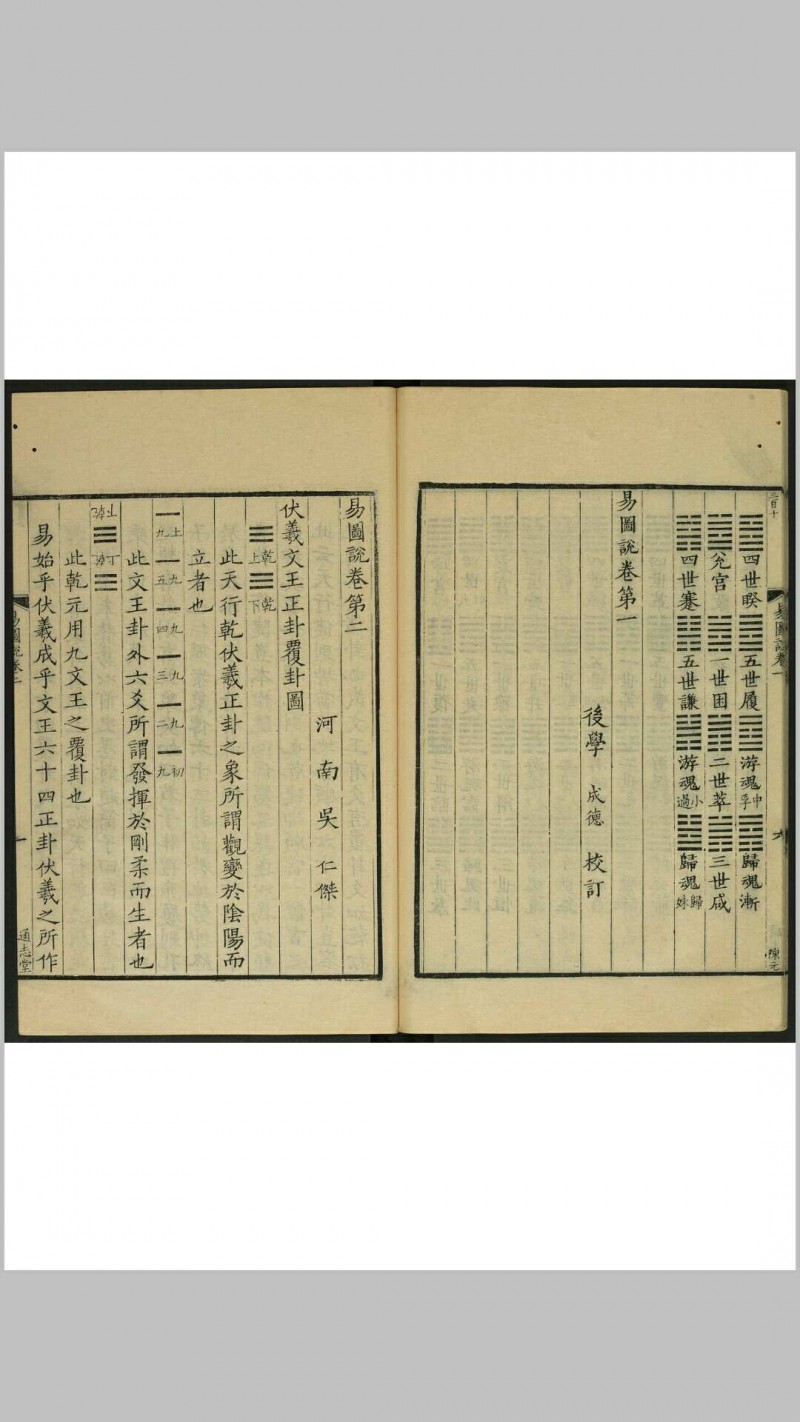 三百十 易圖說卷一 六 陳元
四世睽 五世履 游魂中孚 歸魂漸
兌宮 一世困 二世萃 三世咸
四世蹇 五世謙 游魂小過 歸魂歸妹
易圖說卷第一
後學 成德 校訂
易圖說卷第二
河南 吳 仁傑
伏羲文王正卦覆卦圖
乾上 乾下
此天行乾伏羲正卦之象所謂觀變於陰陽而
立者也
上九 九五 九四 九三 九二 初九
此文王卦外六爻所謂發揮於剛柔而生者也
乾上 乾下
此乾元用九文王之覆卦也
易始乎伏羲成乎文王六十四正卦伏羲之所作
易圖說卷二 一 通志堂